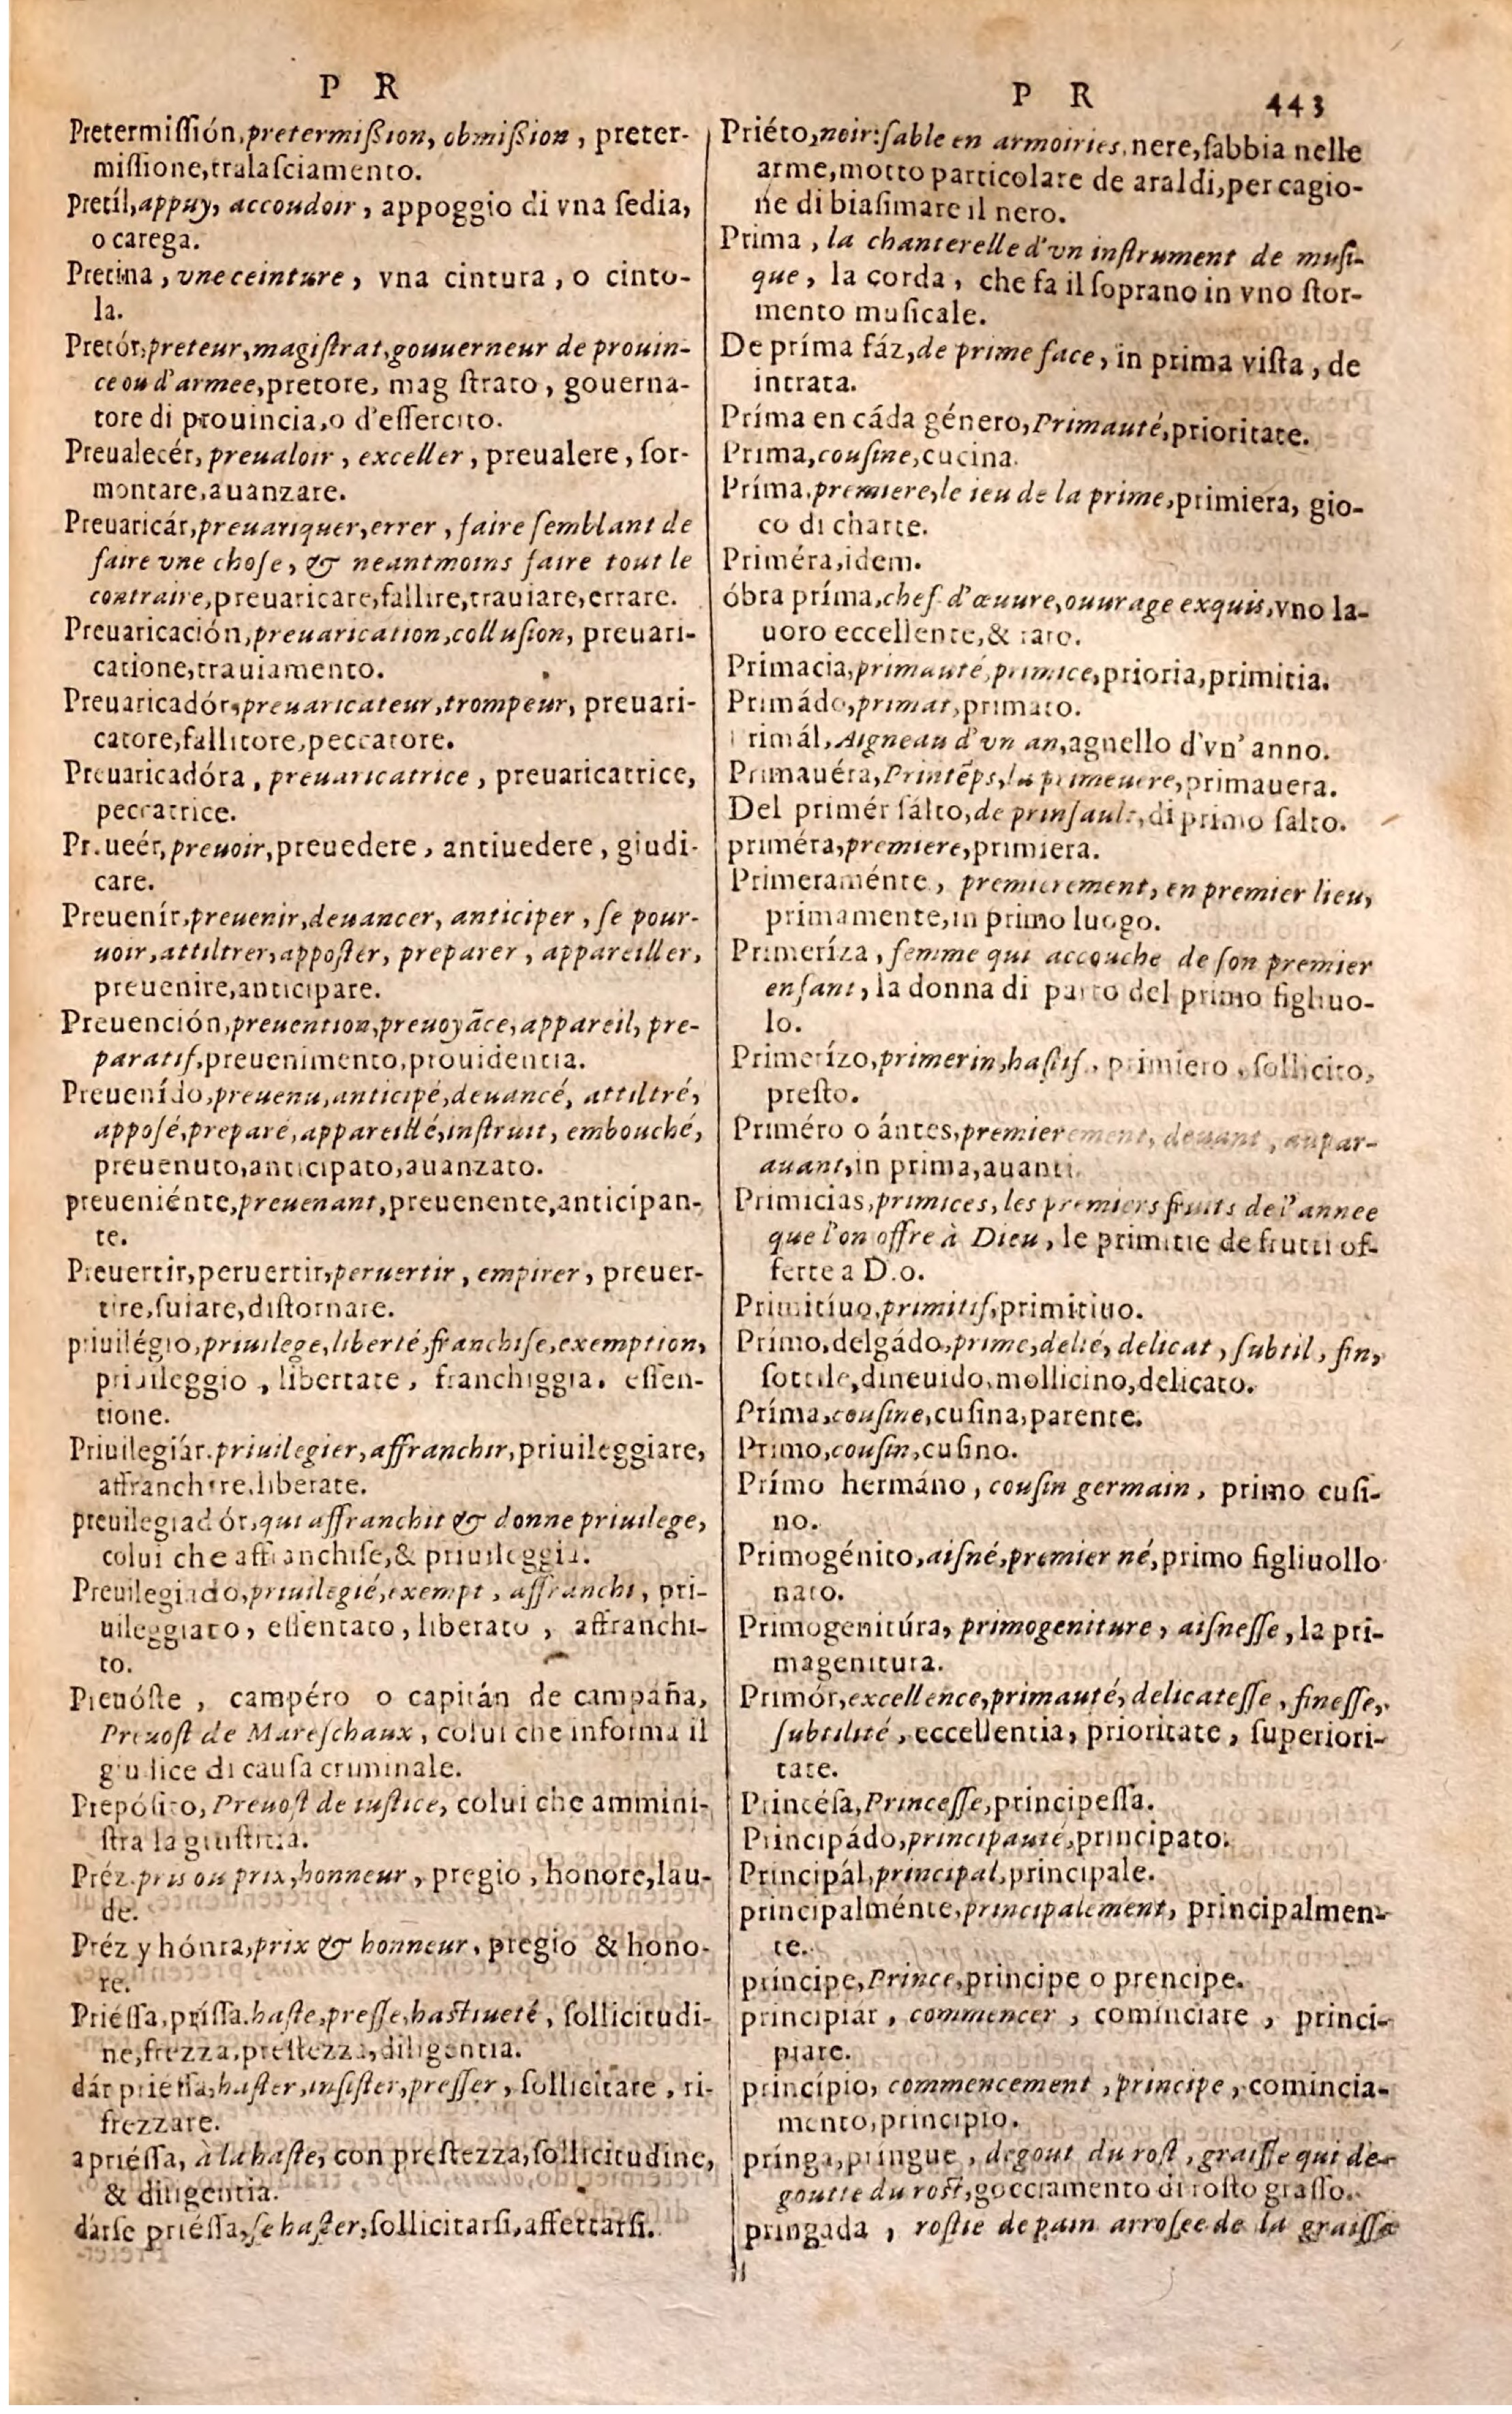 P R
Pretermiſſión, pretermiſsion, obmiſsion, preter-
miſſione, tralaſciamento.
Pretíl, appuy, accoudoir, appoggio di vna ſedia,
o carega.
Pretina, vne ceinture, vna cintura, o cinto-
la.
Pretór, preteur, magiſtrat, gouuerneur de prouin-
ce ou d'armee, pretore, mag ſtrato, gouerna-
tore di prouincia, o d'eſſercito.
Preualecér, preualoir, exceller, preualere, ſor-
montare, auanzare.
Preuaricár, preuariquer, errer, faire ſemblant de
faire vne choſe, & neantmoins faire tout le
contraire, preuaricare, fallire, trauiare, errare.
Preuaricación, preuarication, colluſion, preuari-
catione, trauiamento.
Preuaricadór, preuaricateur, trompeur, preuari-
catore, fallitore, peccatore.
Preuaricadóra, preuaricatrice, preuaricatrice,
peccatrice.
Pr.ueér, preuoir, preuedere, antiuedere, giudi-
care.
Preuenír, preuenir, deuancer, anticiper, ſe pour-
uoir, attiltrer, appoſter, preparer, appareiller,
preuenire, anticipare.
Preuención, preuention, preuoyãce, appareil, pre-
paratif, preuenimento, prouidentia.
Preuenído, preuenu, anticipé, deuancé, attiltré,
appoſé, preparé, appareillé, inſtruit, embouché,
preuenuto, anticipato, auanzato.
preueniénte, preuenant, preuenente, anticipan-
te.
Preuertir, peruertir, peruertir, empirer, preuer-
tire, ſuiare, diſtornare.
priuilégio, priuilege, liberté, franchiſe, exemption,
priuileggio, libertate, franchiggia. eſſen-
tione.
Priuilegiár. priuilegier, affranchir, priuileggiare,
affranchire, liberate.
preuilegiadór, qui affranchit & donne priuilege,
colui che affranchiſe, & priuileggia.
Preuilegiado, priuilegié, exempt, affranchi, pri-
uileggiato, eſſentato, liberato, affranchi-
to.
Preuóſte, campéro o capitán de campaña,
Preuoſt de Mareſchaux, colui che informa il
giudice di cauſa criminale.
Prepóſito, Preuoſt de iuſtice, colui che ammini-
ſtra la giuſtitia.
Préz. pris ou prix, honneur, pregio, honore, lau-
de.
Préz y hónra, prix & honneur, pregio & hono-
re.
Priéſſa, príſſa. haſte, preſſe, haſtiueté, ſollicitudi-
ne, frezza, preſtezza, diligentia.
dár priéſſa, haſter, inſiſter, preſſer, ſollicitare, ri-
frezzare.
a priéſſa, à la haſte, con preſtezza, ſollicitudine,
& diligentia.
dárſe priéſſa, ſe haſter, ſollicitarſi, affettarſi.
P R 443
Priéto, noir: ſable en armoiries. nere, ſabbia nelle
arme, motto particolare de araldi, per cagio-
ne di biaſimare il nero.
Prima, la chanterelle d'vn inſtrument de muſi-
que, la corda, che fa il ſoprano in vno ſtor-
mento muſicale.
De príma fáz, de prime face, in prima viſta, de
intrata.
Príma en cáda género, Primauté, prioritate.
Prima, couſine, cucina.
Príma, premiere, le ieu de la prime, primiera, gio-
co di charte.
Priméra, idem.
óbra príma, chef d'œuure, ouurage exquis, vno la-
uoro eccellente, & raro.
Primacia, primauté, primice, prioria, primitia.
Primádo, primat, primato.
Primál, Aigneau d'vn an, agnello d'vn' anno.
Primauéra, Printẽps, la primeuere, primauera.
Del primér ſálto, de prinſault, di primo ſalto.
priméra, premiere, primiera.
Primeraménte, premierement, en premier lieu,
primamente, in primo luogo.
Primeríza, femme qui accouche de ſon premier
enfant, la donna di parto del primo figliuo-
lo.
Primerízo, primerin, haſtif, primiero, ſollicito,
preſto.
Priméro o ántes, premierement, deuant, aupar-
auant, in prima, auanti.
Primicias, primices, les premiers fruits de l'annee
que l'on offre à Dieu, le primitie de frutti of-
ferte a D.o.
Primitíuo, primitif, primitiuo.
Prímo, delgádo, prime, delié, delicat, ſubtil, fin,
ſottile, dineuido, mollicino, delicato.
Príma, couſine, cuſina, parente.
Primo, couſin, cuſino.
Prímo hermáno, couſin germain, primo cuſi-
no.
Primogénito, aiſné, premier né, primo figliuollo
nato.
Primogenitúra, primogeniture, aiſneſſe, la pri-
magenitura.
Primór, excellence, primauté, delicateſſe, fineſſe,
ſubtilité, eccellentia, prioritate, ſuperiori-
tate.
Princéſa, Princeſſe, principeſſa.
Principádo, principauté, principato.
Principál, principal, principale.
principalménte, principalement, principalmen-
te.
príncipe, Prince, principe o prencipe.
principiar, commencer, cominciare, princi-
piare.
princípio, commencement, principe, comincia-
mento, principio.
prínga, pringue, degout du roſt, graiſſe qui de-
goutte du roſt, gocciamento di roſto graſſo.
pringada, roſtie de pain arroſee de la graiſſe